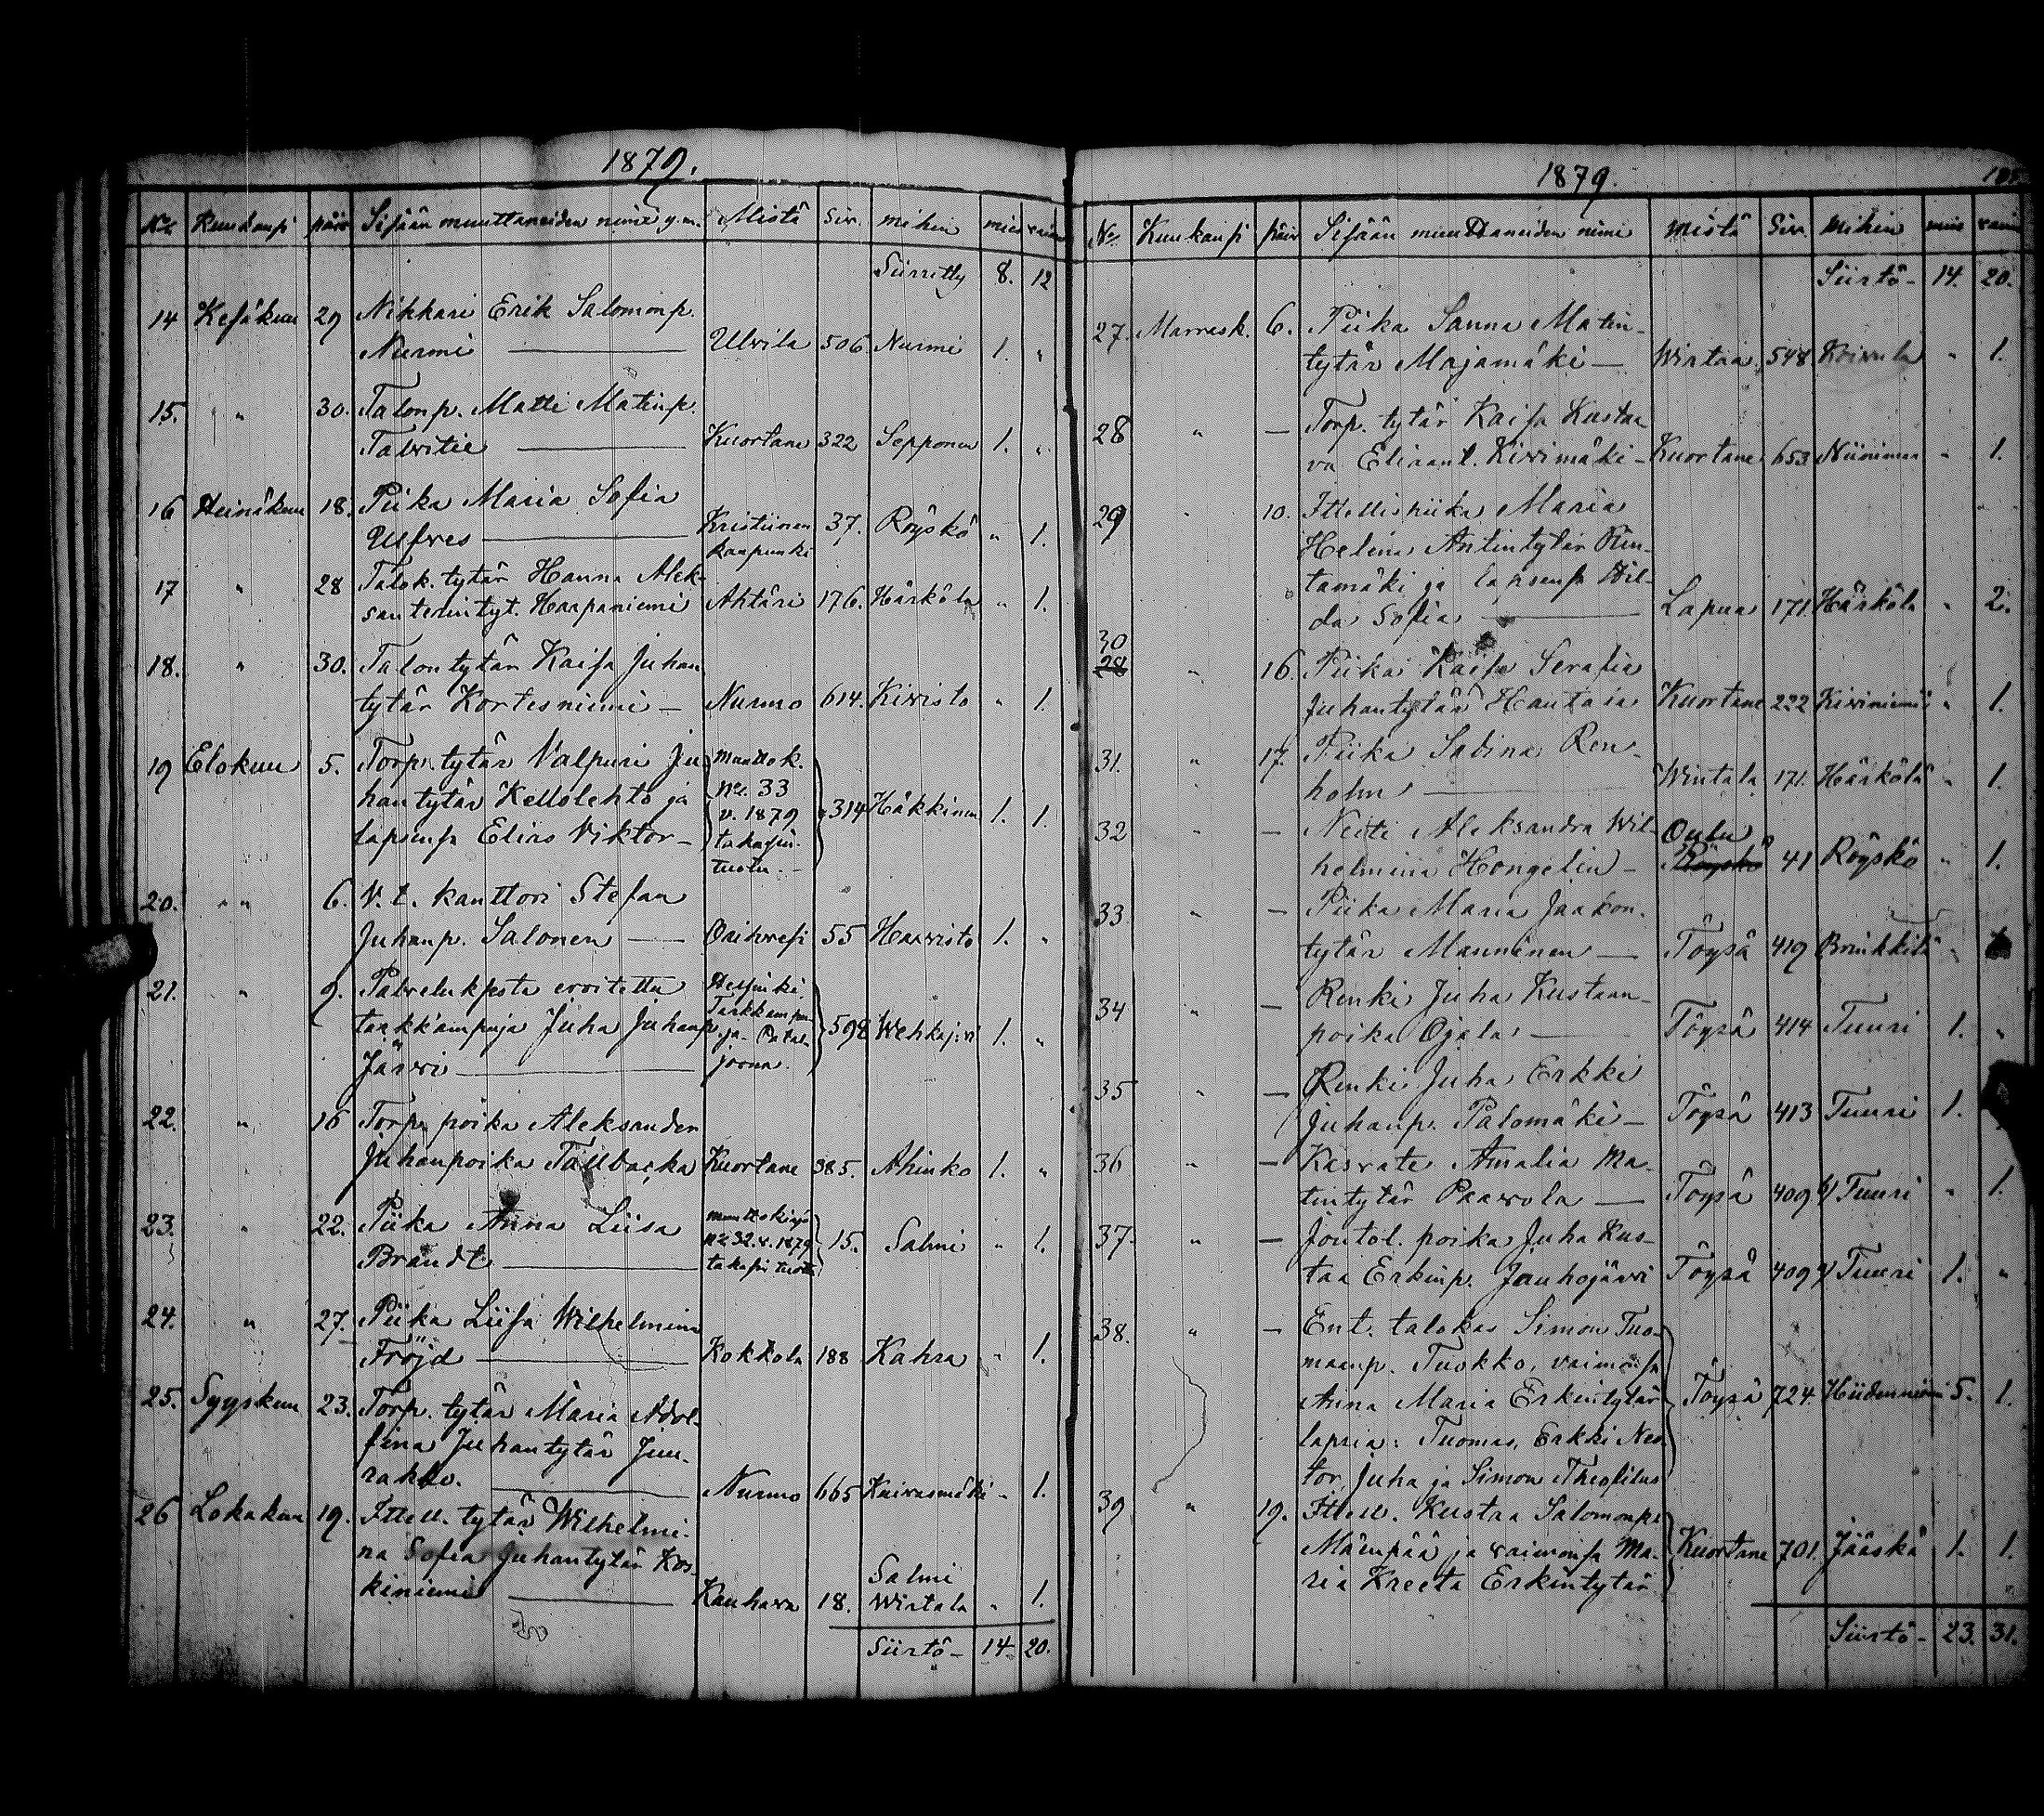 1879.
No. Kuukausi päiv Sisään muuttaneiden nimi y.m. Mistä Siv. mihin mies vaim
Siirretty 8. 12
14 Kesäkuu 29 Nikkari Erik Salomonp.
Nurmi — Ulvila 506. Nurmi 1. "
15. " 30. Talonp. Matti Matinp.
Talvitie — Kuortane 322 Sepponen 1. "
16 Heinäkuu 18. Piika Maria Sofia
Ulfves — Kristiinan 37. Röyskö " 1.
kaupunki
17 " 28 Talok. tytär Hanna Alek-
santerintyt. Haapaniemi Ahtäri 176. Härkölä " 1.
18. " 30. Talontytär Kaisa Juhan
tytär Kortesniemi — Nurmo 614. Kivisto " 1.
19 Elokuu 5. Torp. tytär Valpuri Ju
hantytär Kellolehto ja
lapsensa Elias Viktor —
Muuttok.
No. 33
v. 1879
takasin
tuotu. —
314 Häkkinen 1. 1.
20. " 6. V. t. kanttori Stefan
Juhanp. Salonen — Orihvesi 55 Harvisto 1. "
21. " 9. Palveluksesta eroitettu
tarkk'ampuja Juha Juhanp.
Järvi —
Helsinki,
Tarkkampu-
ja- Patal-
joona.
598 Wehkajärvi 1. "
22. " 16 Torp. poika Aleksander
Juhanpoika Tallbacka Kuortane 385. Ahinko 1. "
23. " 22. Piika Anna Liisa
Brandt —
muuttokirja
No 32. v. 1879
takasin tuotu
15. Salmi " 1.
24. " 27. Piika Liisa Wilhelmina
Fröjd — Kokkola 188 Kahra " 1.
25. Syyskuu 23. Torp. tytär Maria Adol-
fina Juhantytär Juu-
rakko. — Nurmo 665 Kaivasmäki - 1.
26 Lokakuu 19. Ittell. tytär Wilhelmi-
na Sofia Juhantytär Kos-
kiniemi — Kauhava 18. Salmi
Wirtala " 1.
Siirtö — 14. 20.
1879.
No. Kuukausi päiv Sisään muuttaneiden nimi mistä Siv. Mihin mies vaim
Siirtö — 14. 20.
27. Marrask. 6. Piika Sanna Matin-
tytär Majamäki — Wirtaa 548 Koivula " 1.
28 " — Torp. tytär Kaisa Kustaa
va Eliaant. Kivimäki — Kuortane 653 Niinimaa " 1.
29 " 10. Ittellispiika Maria
Helena Antintytär Rin-
tamäki ja lapsensa Hil-
da Sofia — Lapua 171. Härkölä " 2.
30
28 " 16. Piika Kaisa Serafia
Juhantytär Hautala Kuortane 222 Kiviniemi " 1.
31. " 17. Piika Sabina Ren-
holm — Wirtala 171. Härkölä " 1.
32 " — Neiti Aleksandra Wil-
helmina Hongelin — Oulu
Röyskö 41 Röyskö " 1.
33 " — Piika Maria Jaakon-
tytär Manninen — Töysä 419 Brinkkilä "
34 " — Renki Juha Kustaan-
poika Ojala — Töysä 414 Tuuri 1. "
35 " — Renki Juha Erkki
Juhanp. Palomäki — Töysä 413 Tuuri 1.
36 " — Kasvate Amalia Ma-
tintytär Paavola — Töysä 409 Tuuri " 1.
37. " — Joutol. poika Juha Kus-
taa Erkinp. Jauhojärvi Töysä 409 Tuuri 1. "
38. " — Ent. talokas Simon Tuo-
maanp. Tuokko, vaimonsa
Anna Maria Erkintytär Töysä 724. Hiidenniemi 5. 1.
lapsia: Tuomas, Erkki Nes
tor, Juha ja Simon Theofilus
39 " 19. Ittell. Kustaa Salomonp.
Mäenpää ja vaimonsa Ma- Kuortane 701. Jääskä 1. 1.
ria Kreeta Erkintytär
Siirtö — 23. 31.